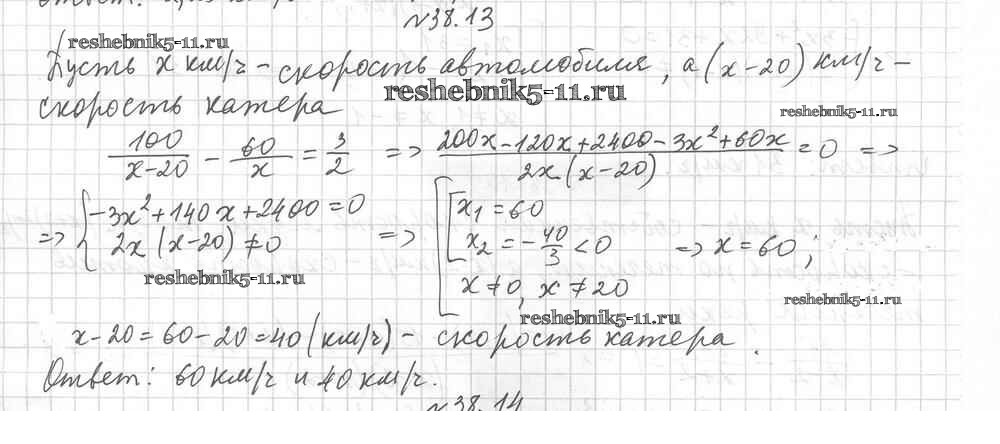 №38.13
reshebnik5-11.ru
Пусть x км/ч – скорость автомобиля, а (x-20) км/ч –
reshebnik5-11.ru
скорость катера
reshebnik5-11.ru
100/(x-20) - 60/x = 3/2 => (200x-120x+2400-3x²+60x)/(2x(x-20)) = 0 =>
=> { -3x²+140x+2400=0 => [ [ x₁=60
2x(x-20)≠0 x₂=-40/3<0 => x=60;
reshebnik5-11.ru x≠0, x≠20
reshebnik5-11.ru
reshebnik5-11.ru
x-20=60-20=40 (км/ч) – скорость катера.
Ответ: 60 км/ч и 40 км/ч.
№38.14